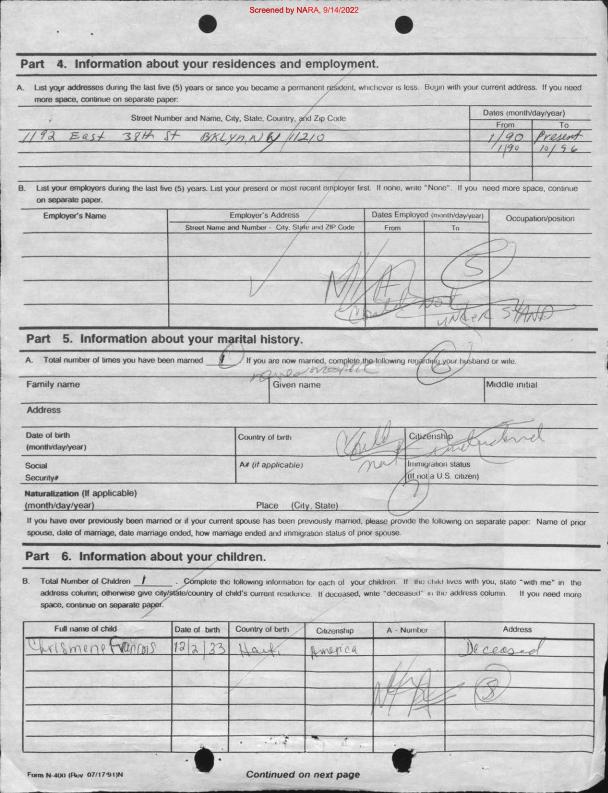 Screened by NARA, 9/14/2022
Part 4. Information about your residences and employment.
A. List your addresses during the last five (5) years or since you became a permanent resident, whichever is less. Begin with your current address. If you need
more space, continue on separate paper:
Street Number and Name, City, State, Country, and Zip Code
Dates (month/day/year)
From To
1192 East 38th St BKLYN.NY 11210 1/90 Present
1/90 10/96
B. List your employers during the last five (5) years. List your present or most recent employer first. If none, write "None". If you need more space, continue
on separate paper.
Employer's Name Employer's Address Dates Employed (month/day/year) Occupation/position
Street Name and Number - City, State and ZIP Code From To
N/A 5
Could not
UNDERSTAND
Part 5. Information about your marital history.
A. Total number of times you have been married 1 If you are now married, complete the following regarding your husband or wife.
Family name Given name Middle initial
Address
Date of birth
(month/day/year) Country of birth Citizenship
Could
not understand
Social
Security# A# (if applicable) Immigration status
(If not a U.S. citizen)
Naturalization (If applicable)
(month/day/year) Place (City, State)
If you have ever previously been married or if your current spouse has been previously married, please provide the following on separate paper: Name of prior
spouse, date of marriage, date marriage ended, how marriage ended and immigration status of prior spouse.
Part 6. Information about your children.
B. Total Number of Children 1 . Complete the following information for each of your children. If the child lives with you, state "with me" in the
address column; otherwise give city/state/country of child's current residence. If deceased, write "deceased" in the address column. If you need more
space, continue on separate paper.
Full name of child Date of birth Country of birth Citizenship A - Number Address
Chrismene Francois 12/2/33 Haiti America Deceased
N/A 8
Form N-400 (Rev 07/17/91)N Continued on next page